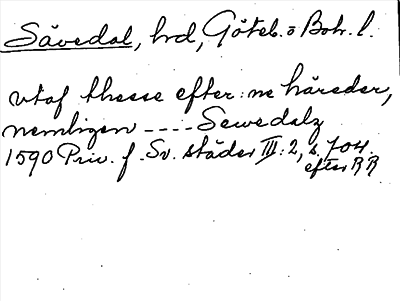 Sävedal, hrd, Göteb. o Boh. l.
vtaf thesse efter:ne häreder,
nemligen ---- Sewedalz
1590 Priv. f. Sv. städer III:2, s. 704.
efter RR